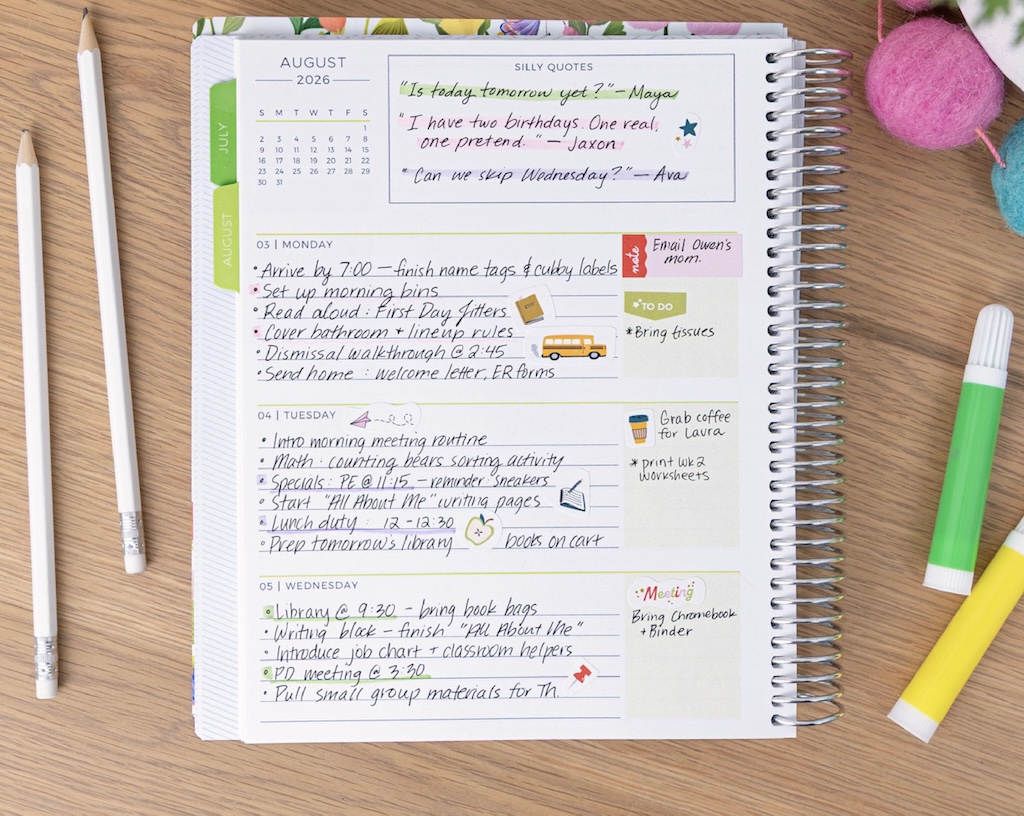 JULY
AUGUST
AUGUST
2026
S M T W T F S
1
2 3 4 5 6 7 8
9 10 11 12 13 14 15
16 17 18 19 20 21 22
23 24 25 26 27 28 29
30 31
SILLY QUOTES
"Is today tomorrow yet?" — Maya
"I have two birthdays. One real,
one pretend." — Jaxon
"Can we skip Wednesday?" — Ava
03 | MONDAY
• Arrive by 7:00 — finish name tags & cubby labels
• Set up morning bins
• Read aloud : First Day Jitters
• Cover bathroom + lineup rules
• Dismissal walkthrough @ 2:45
• Send home : welcome letter, ER forms
note
Email Owen's
mom.
TO DO
*Bring tissues
04 | TUESDAY
• Intro morning meeting routine
• Math : counting bears sorting activity
• Specials : PE @ 11:15 – reminder: sneakers
• Start "All About Me" writing pages
• Lunch duty : 12 - 12:30
• Prep tomorrow's library books on cart
Grab coffee
for Laura
* print wk 2
worksheets
05 | WEDNESDAY
• Library @ 9:30 - bring book bags
• Writing block – finish "All About Me"
• Introduce job chart + classroom helpers
• PD meeting @ 3:30
• Pull small group materials for Th.
Meeting
Bring Chromebook
+ Binder